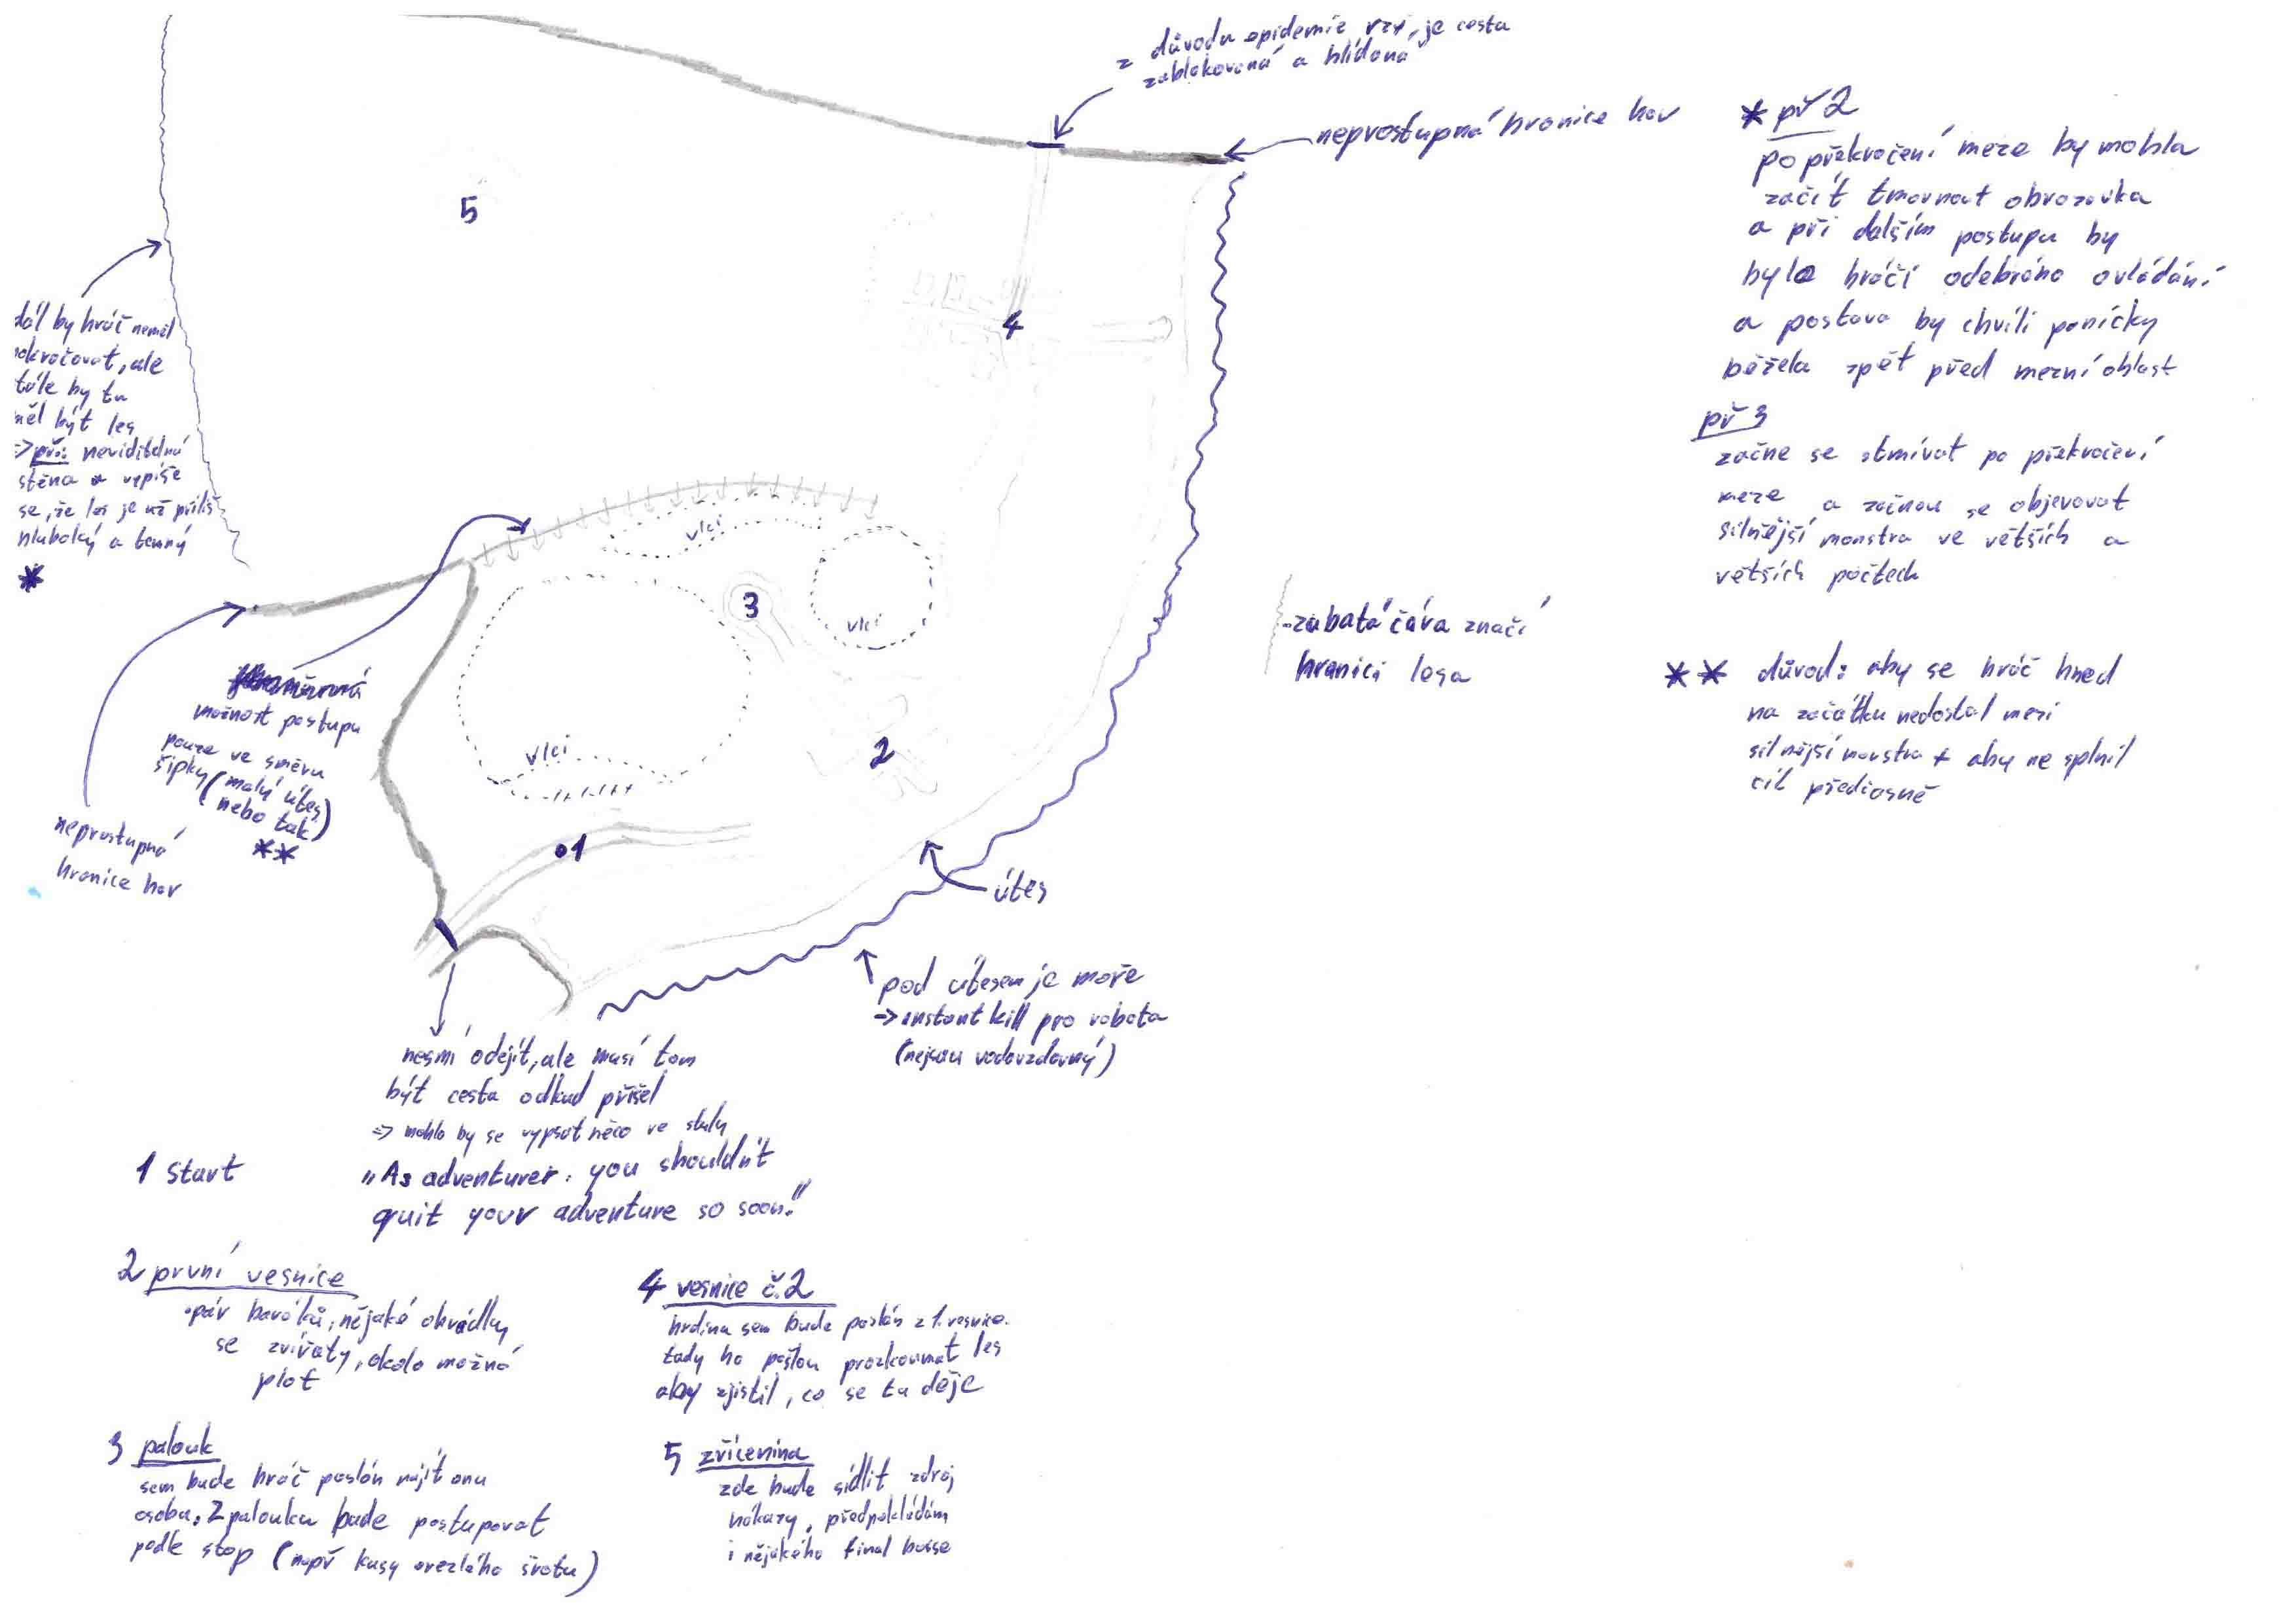 z důvodu epidemie rzi, je cesta
zablokovaná a hlídaná
neprostupná hranice hor
5
4
dál by hráč neměl
pokračovat, ale
stále by tu
měl být les
=> př.: neviditelná
stěna a vypíše
se, že les je už příliš
hluboký a temný
*
vlci
3
vlci
vlci
2
1
možnost postupu
pouze ve směru
šipky (malý útes
nebo tak)
**
neprostupná
hranice hor
útes
pod útesem je moře
-> instant kill pro robota
(nejsou vodovzdorný)
nesmí odejít, ale musí tam
být cesta odkud přišel
=> mohlo by se vypsat něco ve stylu
„As adventurer, you shouldn't
quit your adventure so soon."
-zubatá čára značí
hranici lesa
* př 2
po překročení meze by mohla
začít tmavnout obrazovka
a při dalším postupu by
bylo hráči odebráno ovládání
a postava by chvíli panicky
běžela zpět před mezní oblast
př 3
začne se stmívat po překročení
meze a začnou se objevovat
silnější monstra ve větších a
větších počtech
** důvod: aby se hráč hned
na začátku nedostal mezi
silnější monstra + aby nesplnil
cíl předčasně
1 Start
2 první vesnice
•pár baráků, nějaké ohrádky
se zvířaty, okolo možná
plot
3 palouk
sem bude hráč poslán najít onu
osobu. Z palouku bude postupovat
podle stop (např kusy zrezlého šrotu)
4 vesnice č.2
hrdina sem bude poslán z 1. vesnice.
tady ho pošlou prozkoumat les
aby zjistil, co se tu děje
5 zřícenina
zde bude sídlit zdroj
nákazy, předpokládám
i nějakého final bosse